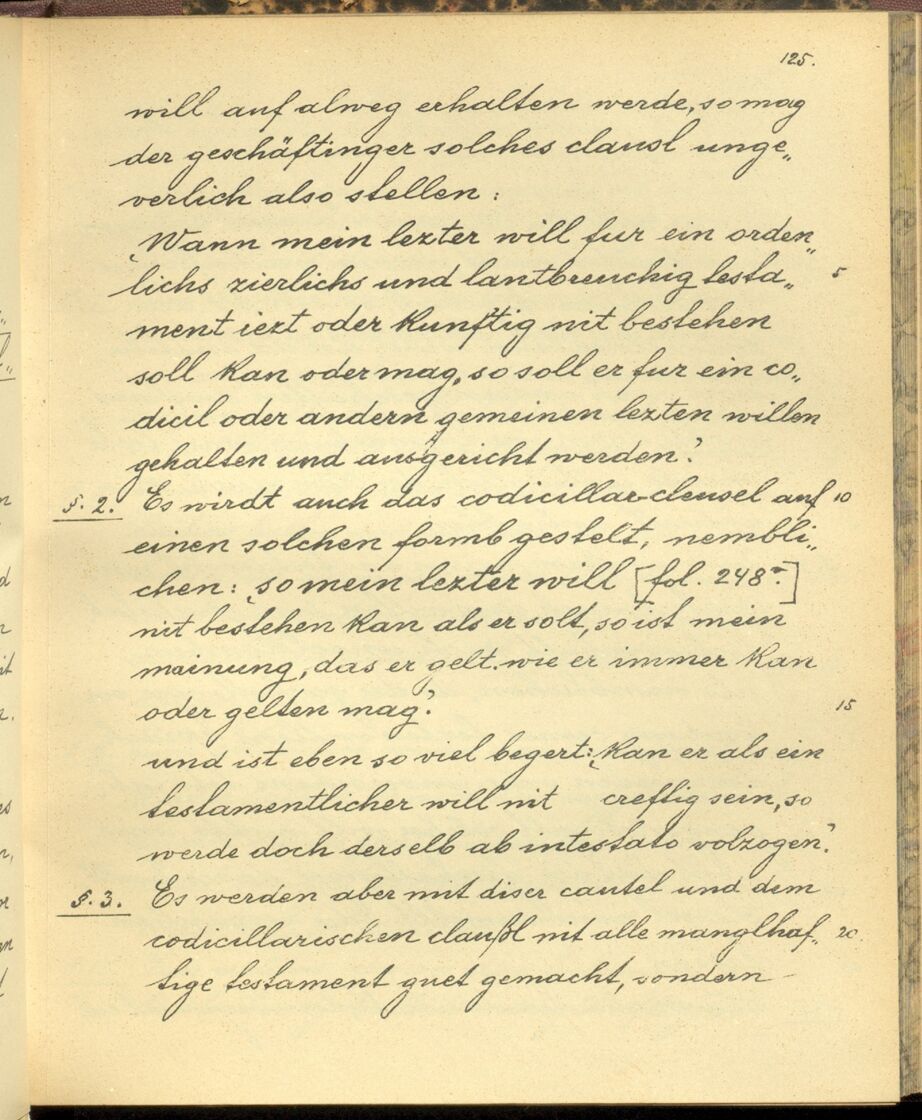 125.
will auf alweg erhalten werde, so mag
der geschäftinger solches clausl unge„
verlich also stellen:
‚Wann mein lezter will fur ein orden„
lichs zierlichs und lantbreuchig testa„ 5
ment iezt oder kunftig nit bestehen
soll kan oder mag, so soll er fur ein co„
dicil oder andern gemeinen lezten willen
gehalten und ausgericht werden.’
§. 2. Es wirdt auch das codicillar-cleusel auf 10
einen solchen formb gestelt, nembli„
chen: ‚so mein lezter will [fol. 248r.]
nit bestehen kan als er solt, so ist mein
mainung, das er gelt. wie er immer kan
oder gelten mag.’ 15
und ist eben so viel begert: ‚kan er als ein
testamentlicher will nit creftig sein, so
werde doch derselb ab intestato volzogen.’
§. 3. Es werden aber mit diser cautel und dem
codicillarischen claußl nit alle manglhaf„ 20.
tige testament guet gemacht, sondern